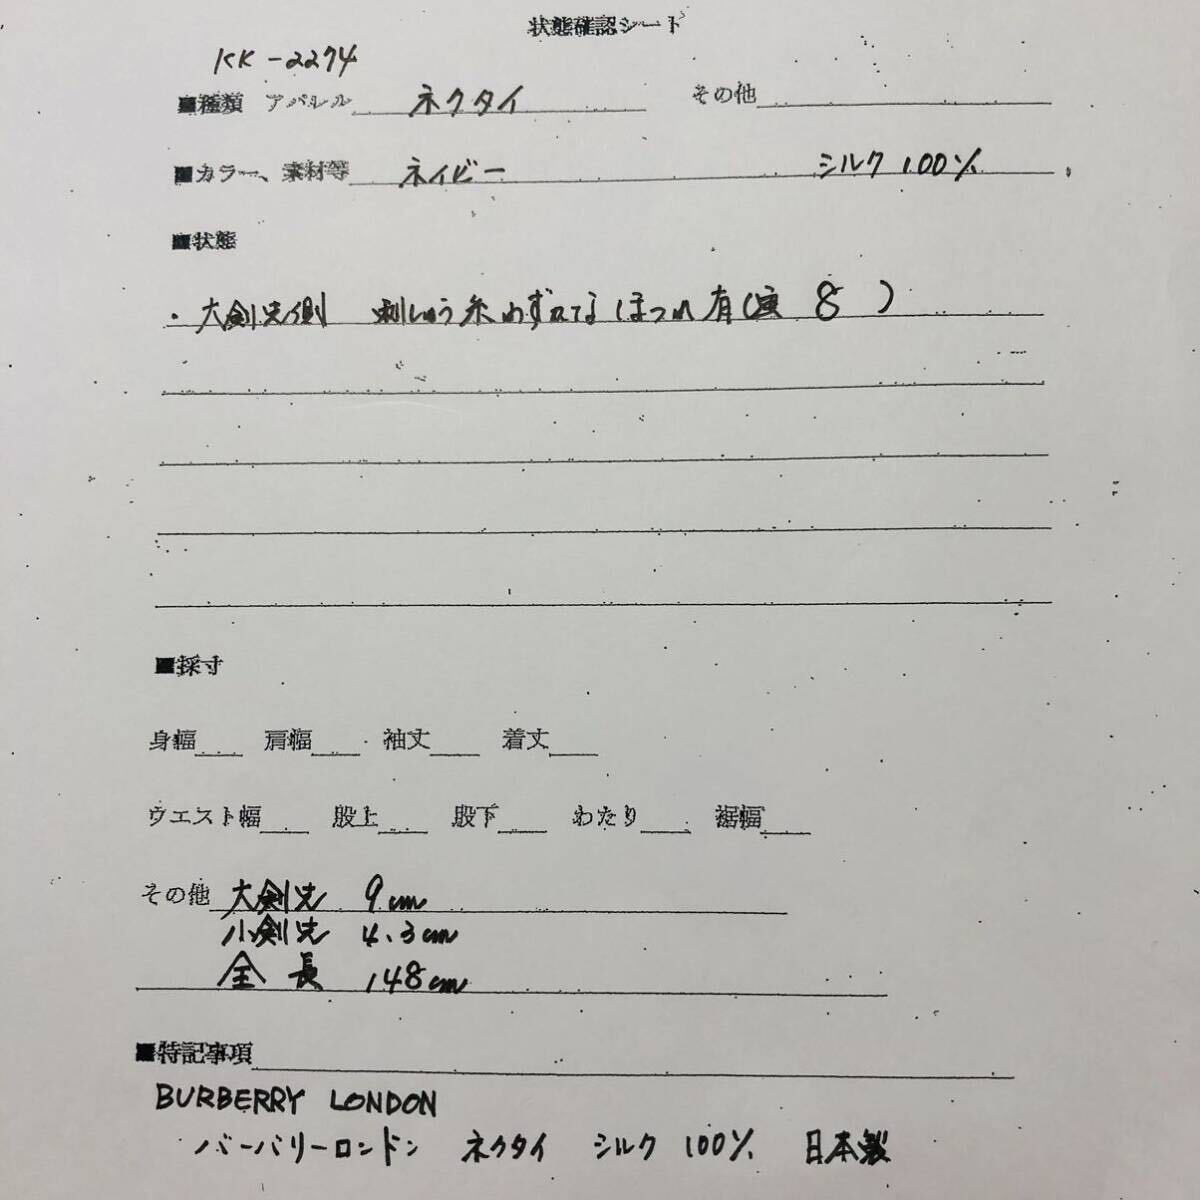 状態確認シート
KK-2274
■種類 アパレル ネクタイ その他
■カラー、素材等 ネイビー シルク100%
■状態
・大剣先側 刺しゅう糸わずかな ほつれ有(写 8 )
■採寸
身幅 肩幅 袖丈 着丈
ウエスト幅 股上 股下 わたり 裾幅
その他 大剣先 9cm
小剣先 4.3cm
全長 148cm
■特記事項
BURBERRY LONDON
バーバリーロンドン ネクタイ シルク100% 日本製